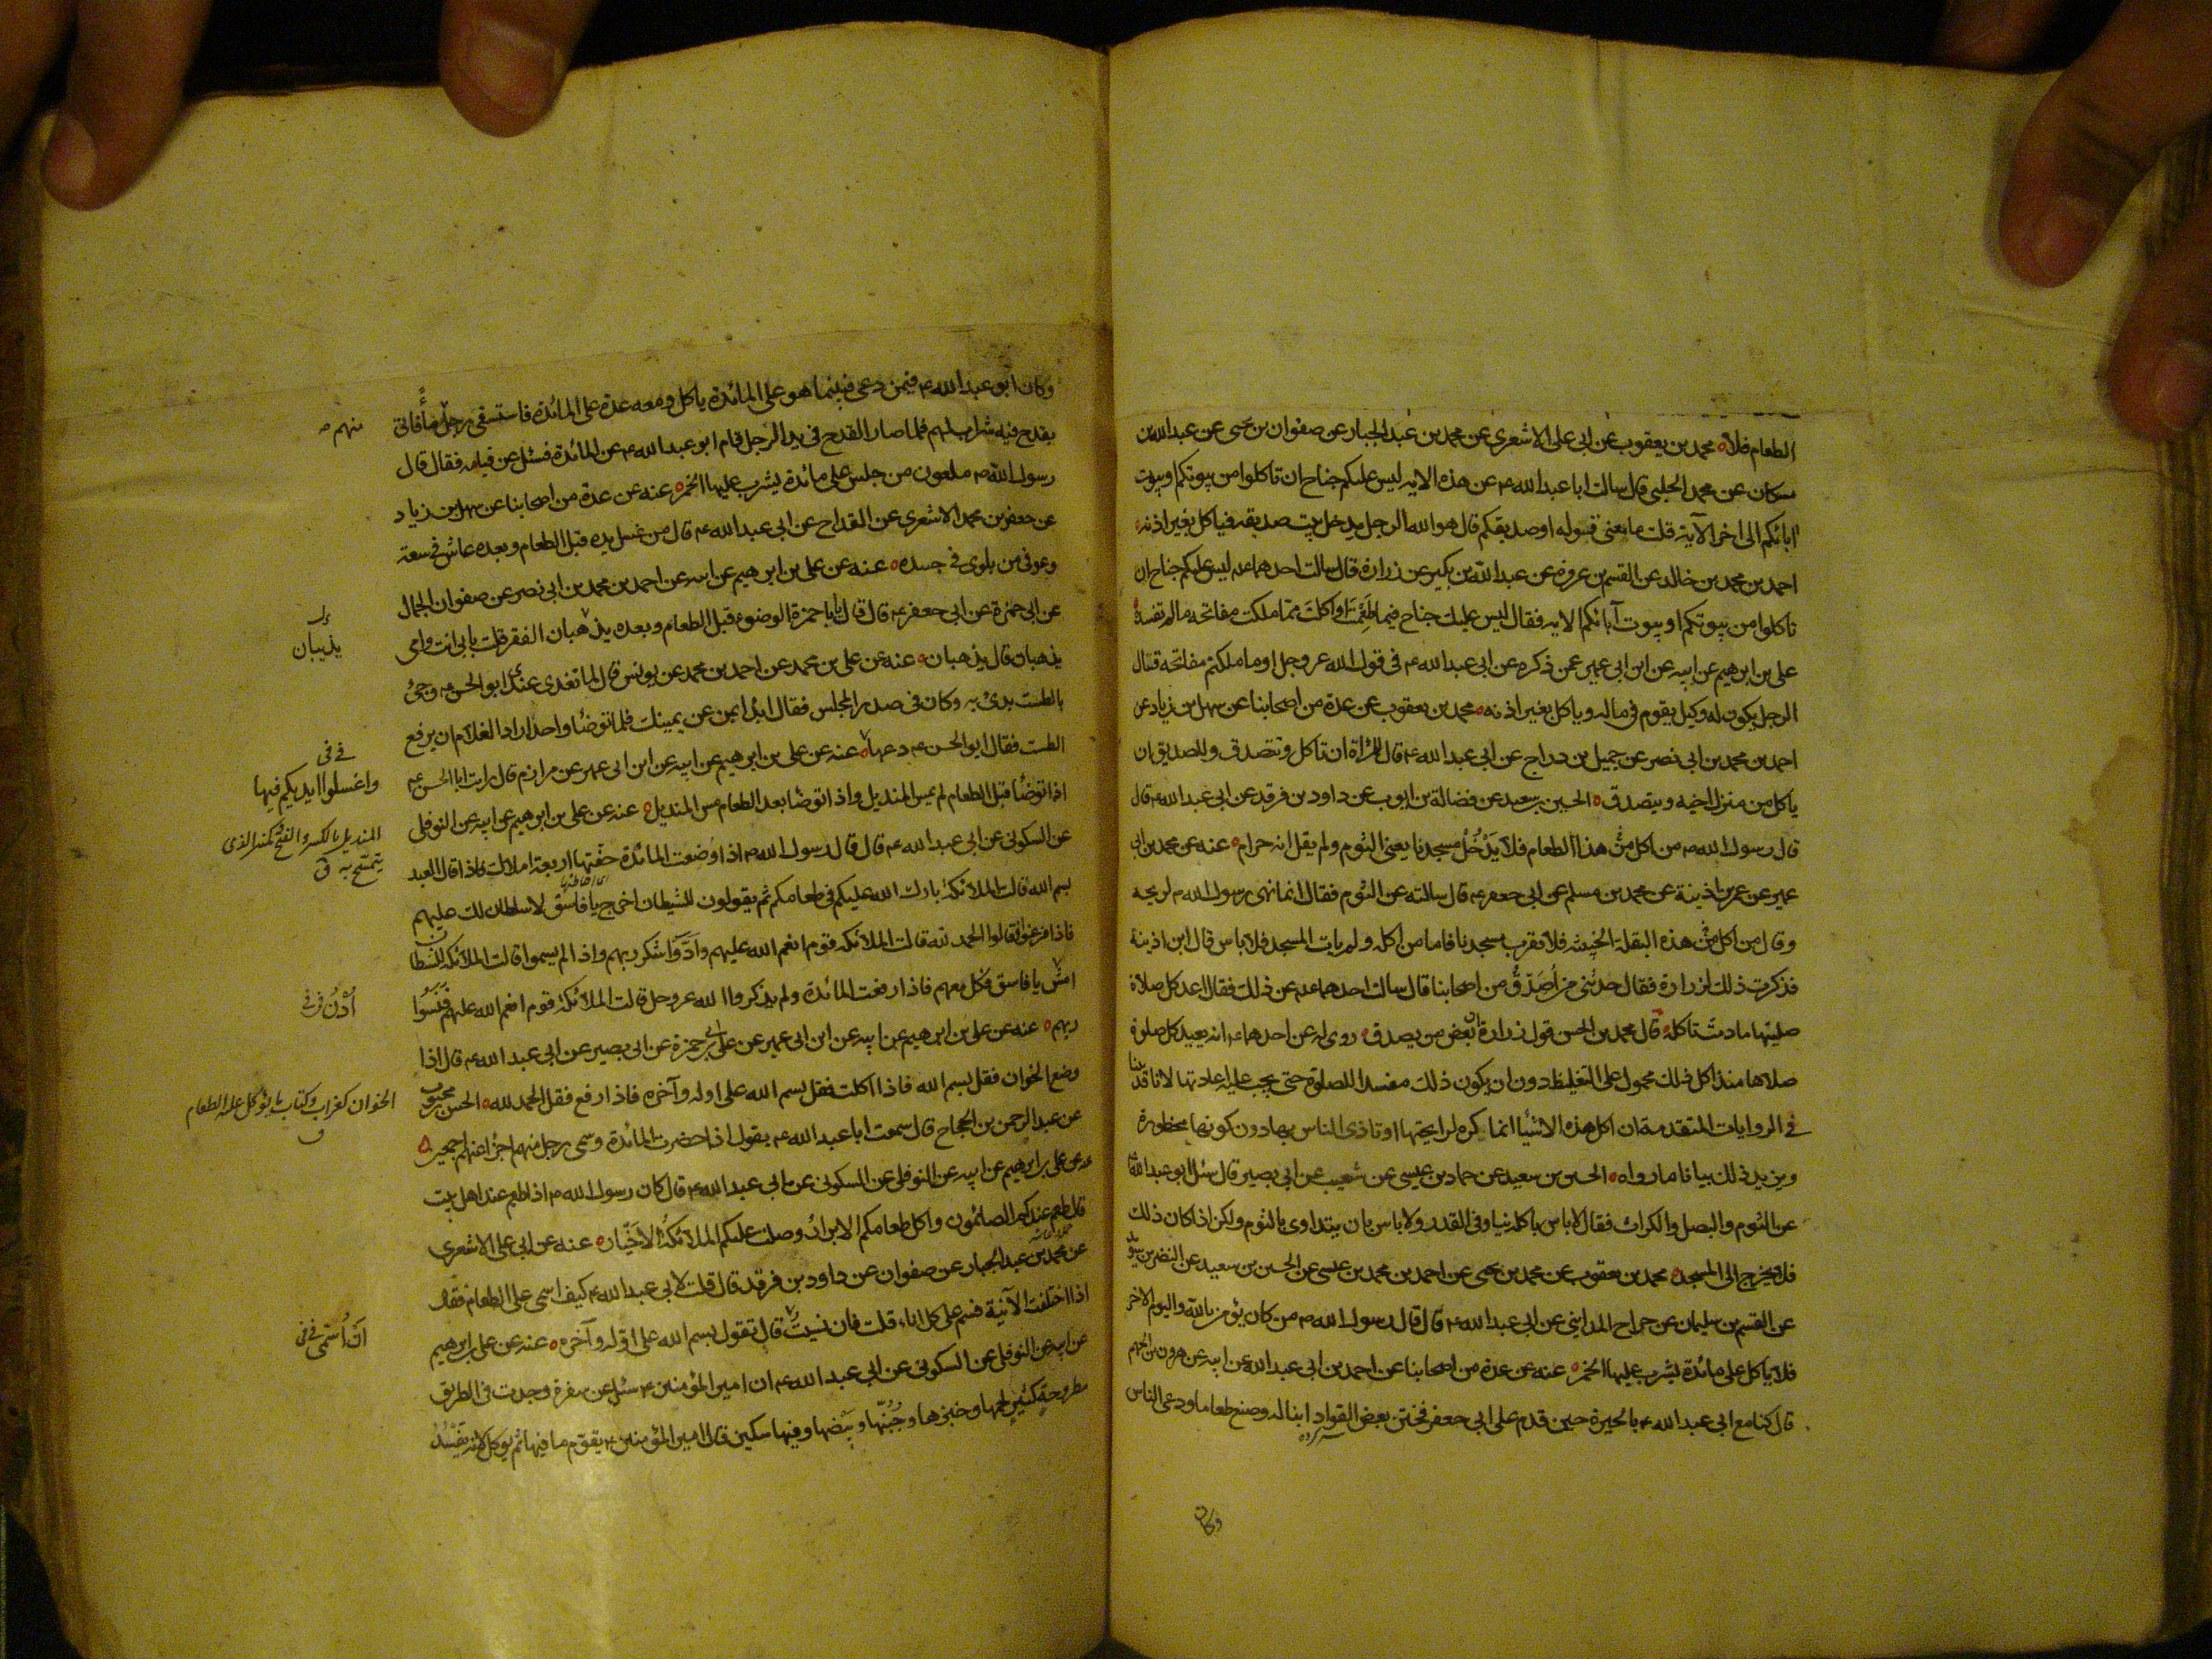 الطعام فلا محمد بن يعقوب عن ابى على الاشعرى عن محمد بن عبد الجبار عن صفوان بن يحيى عن عبد الله بن
مسكان عن محمد الحلبى قال سالت ابا عبد الله ع عن هذه الايه ليس عليكم جناح ان تاكلوا من بيوتكم او بيوت
ابائكم الى اخر الآية قلت ما يعنى بقوله او صديقكم قال هو والله الرجل يدخل بيت صديقه فياكل بغير اذنه
احمد بن محمد بن خالد عن القسم بن عروة عن عبد الله بن بكير عن زرارة قال سالت احدهما ع ليس عليكم جناح ان
تاكلوا من بيوتكم او بيوت آبائكم الايه فقال ليس عليك جناح فيما طعمت او اكلت مما ملكت مفاتحه ما لم تفسد
على بن ابرهيم عن ابيه عن ابن ابى عمير عمن ذكره عن ابى عبد الله ع فى قول الله عز وجل او ما ملكتم مفاتحه فقال
الرجل يكون له وكيل يقوم فى ماله وياكل بغير اذنه محمد بن يعقوب عن عدة من اصحابنا عن سهل بن زياد عن
احمد بن محمد بن ابى نصر عن جميل بن دراج عن ابى عبد الله ع قال للمراة ان تاكل وتتصدق وللصديق ان
ياكل من منزل اخيه ويتصدق الحسين بن سعيد عن فضالة بن ايوب عن داود بن فرقد عن ابى عبد الله ع قال
قال رسول الله ص من اكل من هذا الطعام فلا يدخل مسجدنا يعنى الثوم ولم يقل انه حرام عنه عن محمد بن ابى
عمير عن عمر بن اذينة عن محمد بن مسلم عن ابى جعفر ع قال سالته عن الثوم فقال انما نهى رسول الله ص لريحه
وقال من اكل من هذه البقلة الخبيثه فلا يقرب مسجدنا فاما من اكله ولم يات المسجد فلا باس قال ابن اذينة
فذكرت ذلك لزرارة فقال حدثنى من اصدق من اصحابنا قال سالت احدهما ع عن ذلك فقال اعد كل صلاة
صليتها ما دمت تاكله قال محمد بن الحسن قول زرارة بعض من يصدق روى له عن احدهما ع انه يعيد كل صلوة
صلاها منذ اكل ذلك محمول على التغليظ دون ان يكون ذلك مفسدا للصلوة حتى يجب عليه اعادتها لانا قد بينا
فى الروايات المتقدمة ان اكل هذه الاشياء انما كره لرايحتها او تاذى الناس بها دون كونها محظورة
ويزيد ذلك بيانا ما رواه الحسين بن سعيد عن حماد بن عيسى عن شعيب عن ابى بصير قال سئل ابو عبد الله ع
عن الثوم والبصل والكراث فقال لا باس باكله نيا وفى القدر ولا باس بان يتداوى بالثوم ولكن اذا كان ذلك
فلا يخرج الى المسجد محمد بن يعقوب عن محمد بن يحيى عن احمد بن محمد بن عيسى عن الحسين بن سعيد عن النضر بن سويد
عن القسم بن سليمان عن جراح المداينى عن ابى عبد الله ع قال قال رسول الله ص من كان يؤمن بالله واليوم الاخر
فلا ياكل على مائدة يشرب عليها الخمر عنه عن عدة من اصحابنا عن احمد بن ابى عبد الله عن ابيه عن هرون بن الجهم
قال كنا مع ابى عبد الله ع بالحيرة حين قدم على ابى جعفر فختن بعض القواد ابنا له وصنع طعاما ودعى الناس
وكان
وكان ابو عبد الله ع فيمن دعى فبينما هو على المائدة ياكل ومعه عدة على المائدة فاستسقى رجل ماء فاتى
منهم
بقدح فيه شراب لهم فلما صار القدح فى يد الرجل قام ابو عبد الله ع عن المائدة فسئل عن قيامه فقال قال
رسول الله ص ملعون من جلس على مائدة يشرب عليها الخمر عنه عن عدة من اصحابنا عن سهل بن زياد
عن جعفر بن محمد الاشعرى عن القداح عن ابى عبد الله ع قال من غسل يده قبل الطعام وبعده عاش فى سعة
وعوفى من بلوى فى جسده عنه عن على بن ابرهيم عن ابيه عن احمد بن محمد بن ابى نصر عن صفوان الجمال
عن ابى حمزة عن ابى جعفر ع قال قال يا ابا حمزة الوضوء قبل الطعام وبعده يذهبان الفقر قلت بابى انت وامى
يذيبان
يذهبان قال يذهبان عنه عن على بن محمد عن احمد بن محمد عن يونس قال لما تغدى عندى ابو الحسن ع وجئ
بالطست بدئ به وكان فى صدر المجلس فقال ابدأ بمن عن يمينك فلما توضأ واحد اراد الغلام ان يرفع
الطست فقال ابو الحسن ع دعها عنه عن على بن ابرهيم عن ابيه عن ابن ابى عمير عن مرازم قال رايت ابا الحسن ع
واغسلوا ايديكم فيها
اذا توضأ قبل الطعام لم يمس المنديل واذا توضأ بعد الطعام مس المنديل عنه عن على بن ابرهيم عن ابيه عن النوفلى
المنديل بالكسر والفتح وكمنبر الذى
يتمسح به ق
عن السكونى عن ابى عبد الله ع قال قال رسول الله ص اذا وضعت المائدة حفتها اربعة املاك فاذا قال العبد
بسم الله قالت الملائكة بارك الله عليكم فى طعامكم ثم يقولون للشيطان اخرج يا فاسق لا سلطان لك عليهم
فاذا فرغوا فقالوا الحمد لله قالت الملائكه قوم انعم الله عليهم وادوا شكر ربهم واذا لم يسموا قالت الملائكة للشيطان
يا فاسق فكل معهم فاذا رفعت المائدة ولم يذكروا الله عز وجل قالت الملائكة قوم انعم الله عليهم فنسوا
ربهم عنه عن على بن ابرهيم عن ابيه عن ابن ابى عمير عن على بن ابى حمزة عن ابى بصير عن ابى عبد الله ع قال اذا
وضع الخوان فقل بسم الله فاذا اكلت فقل بسم الله على اوله وآخره فاذا رفع فقل الحمد لله الحسن بن محبوب
الخوان كغراب وكتاب ما يؤكل عليه الطعام
ق
عن عبد الرحمن بن الحجاج قال سمعت ابا عبد الله ع يقول اذا حضرت المائدة وسمى رجل منهم اجزأ عنهم اجمعين
عنه عن على بن ابرهيم عن ابيه عن النوفلى عن السكونى عن ابى عبد الله ع قال كان رسول الله ص اذا طعم عند اهل بيت
قال طعم عندكم الصائمون واكل طعامكم الابرار وصلت عليكم الملائكة الاخيار عنه عن ابى على الاشعرى
عن محمد بن عبد الجبار عن صفوان عن داود بن فرقد قال قلت لابى عبد الله ع كيف اسمى على الطعام فقال
اذا اختلفت الآنية فسم على كل اناء قلت فان نسيت قال تقول بسم الله على اوله وآخره عنه عن على بن ابرهيم
ان اسمى
عن ابيه عن النوفلى عن السكونى عن ابى عبد الله ع ان امير المؤمنين ع سئل عن سفرة وجدت فى الطريق
مطروحة كثير لحمها وخبزها وجبنها وبيضها وفيها سكين قال امير المؤمنين ع يقوم ما فيها ثم يؤكل لانه يفسد